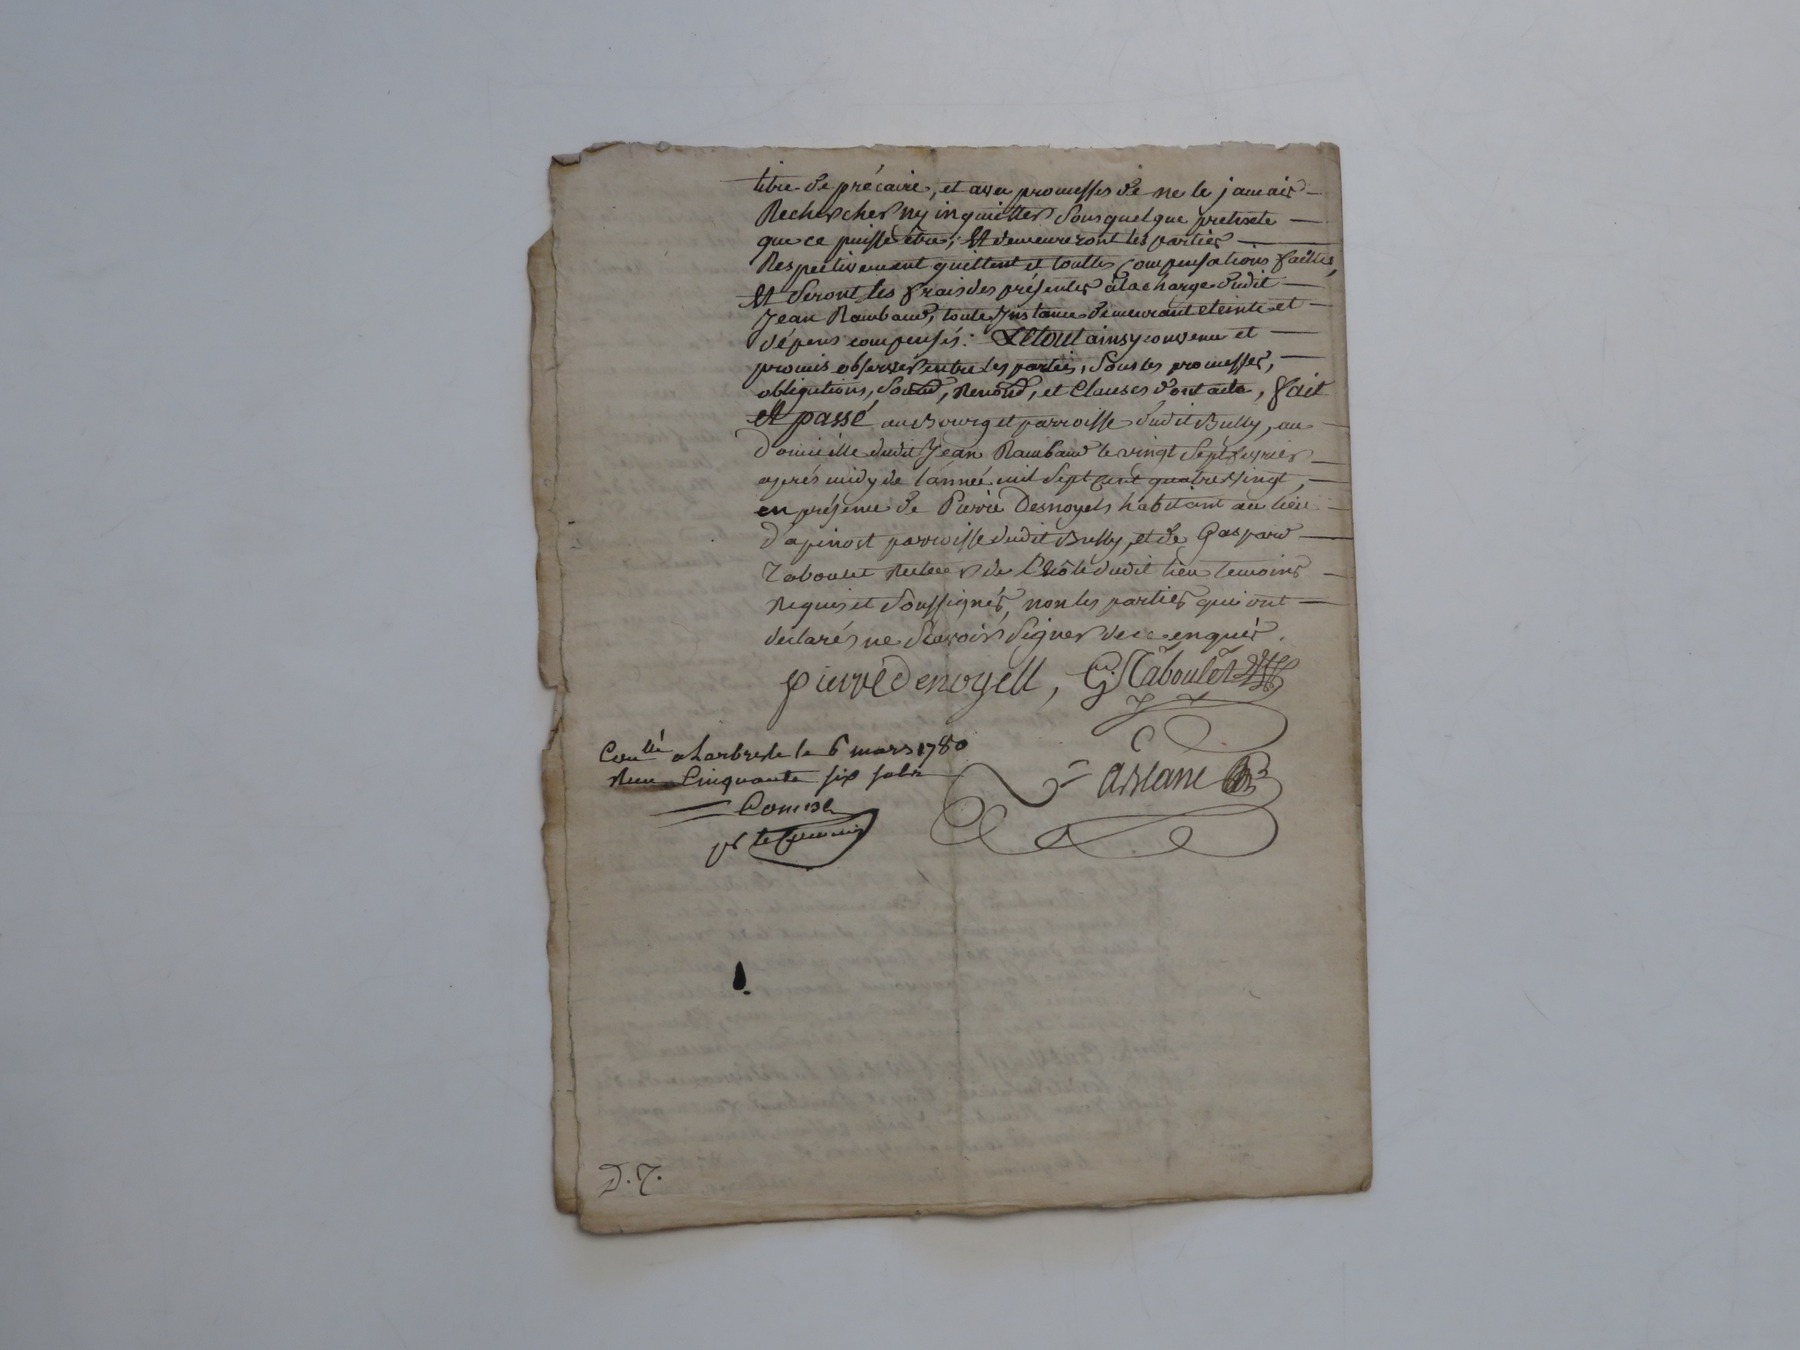 titre de précaire, et avec promesses de ne le jamais
Rechercher ny inquietter sous quelque pretexte
que ce puisse être; Et demeureront les parties
Respectivement quittent et touttes compensations faittes,
Et seront les frais des présentes à la charge dudit
Jean Rambaud, toute Instance demeurant eteinte et
dépens compensés: Le tout ainsy convenu et
promis observer entre les parties, sous les promesses,
obligations, soumd, Renond, et Clauses dont acte, fait
Et passé au Bourg et parroisse dudit Bully, au
domicille dudit Jean Rambaud le vingt sept fevrier
après midy de l'année mil sept cent quatre vingt,
en présence de Pierre Desnoyels habitant au lieu
d'apinost parroisse dudit Bully, et de Gaspard
Taboulet de dudit lieu temoins
Requis et soussignés, non les parties qui ont
declarés ne sçavoir signer de ce enquis.
pierre denoyell, G. Taboulet
Con.llé a Larbresle le 6 mars 1780
Reçu Cinquante six sols
D. J.